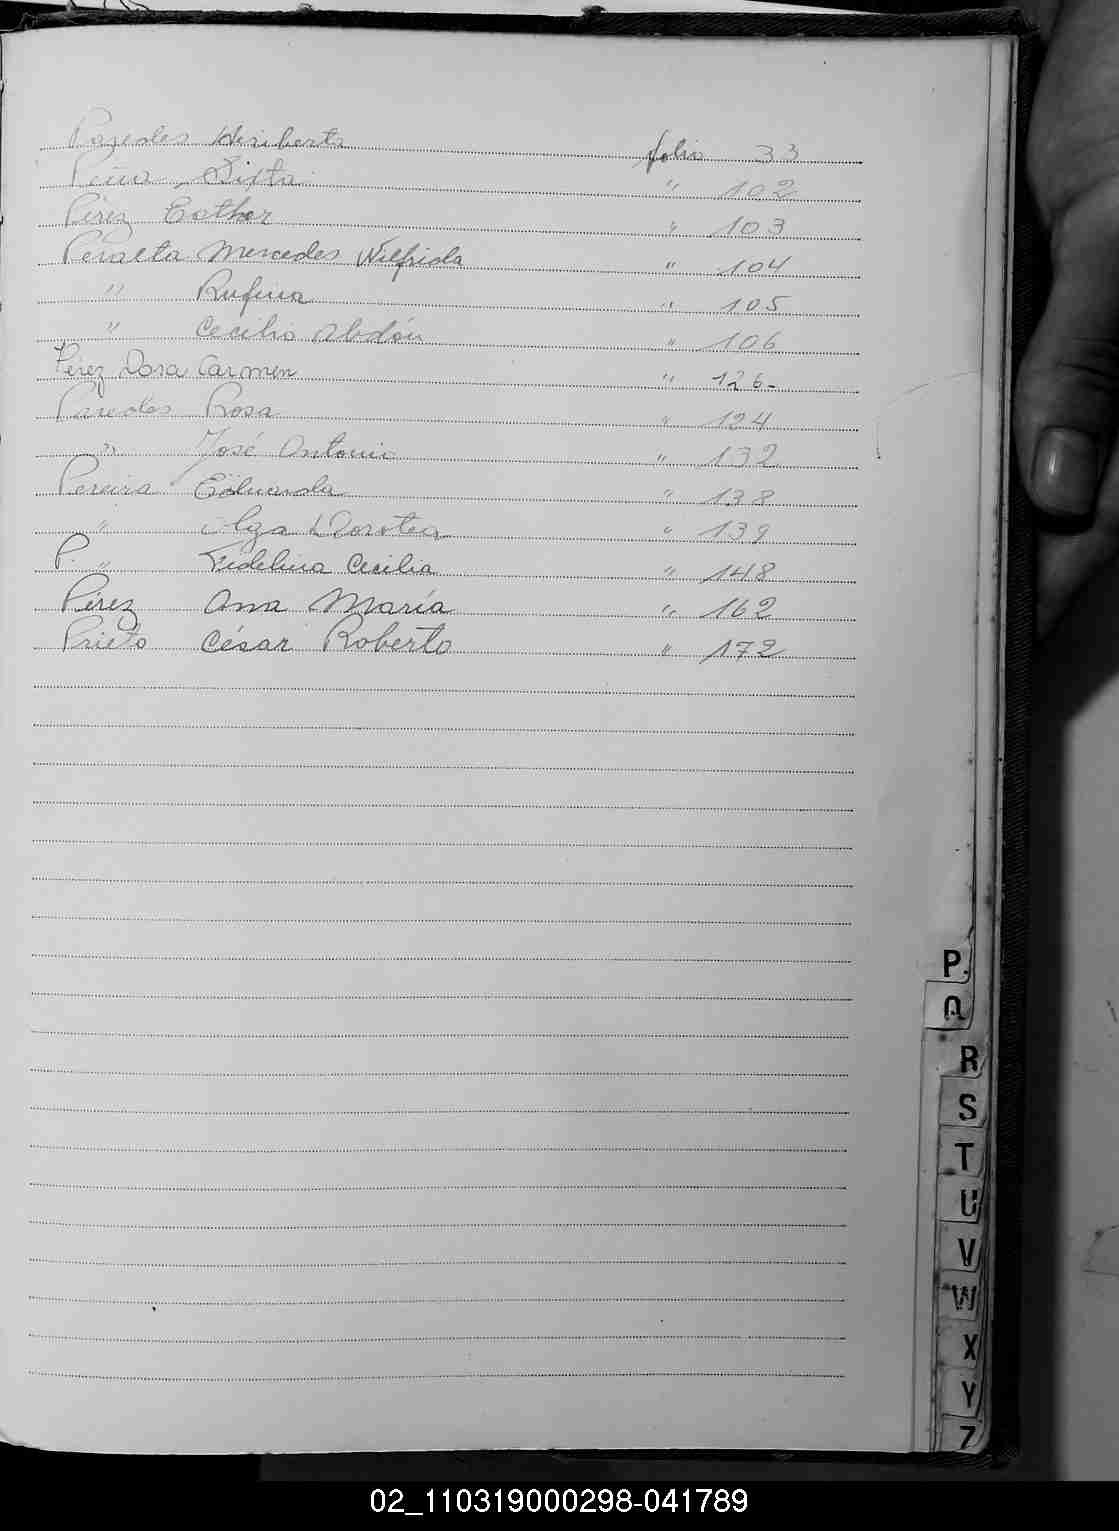 Paredes Heriberto folio 33
Peña, Sixta " 102
Pérez Esther " 103
Peralta Mercedes Wilfrida " 104
" Rufina " 105
" Cecilio Abdón " 106
Pérez Dora Carmen " 126-
Paredes Rosa " 124
" José Antonio " 132
Pereira Eduarda " 138
" Olga Dorotea " 139
P. " Fidelina Cecilia " 148
Pérez Ana María " 162
Prieto César Roberto " 172
P
Q
R
S
T
U
V
W
X
Y
Z
02_110319000298-041789